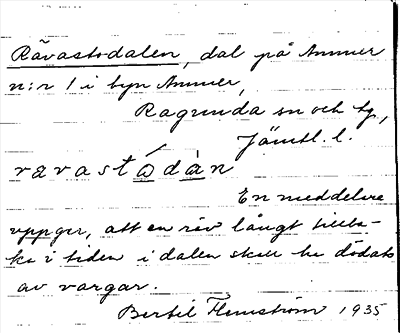 Rävastodalen, dal på Ammer
n:r 1 i byn Ammer,
Ragunda sn och tg,
Jämtl. l.
rävastådàn
En meddelare
uppger, att en räv långt tillba-
ka i tiden i dalen skall ha dödats
av vargar.
Bertil Flemström 1935